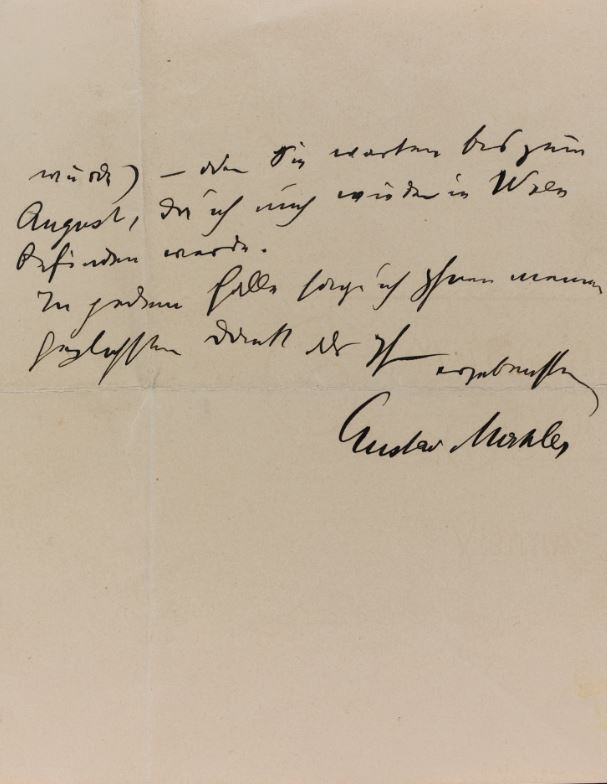 würde) — oder Sie warten bis zum
August, da ich mich wieder in Wien
befinden werde.
In jedem Falle sage ich Ihnen meinen
herzlichsten Dank als Ihr ergebenster
Gustav Mahler